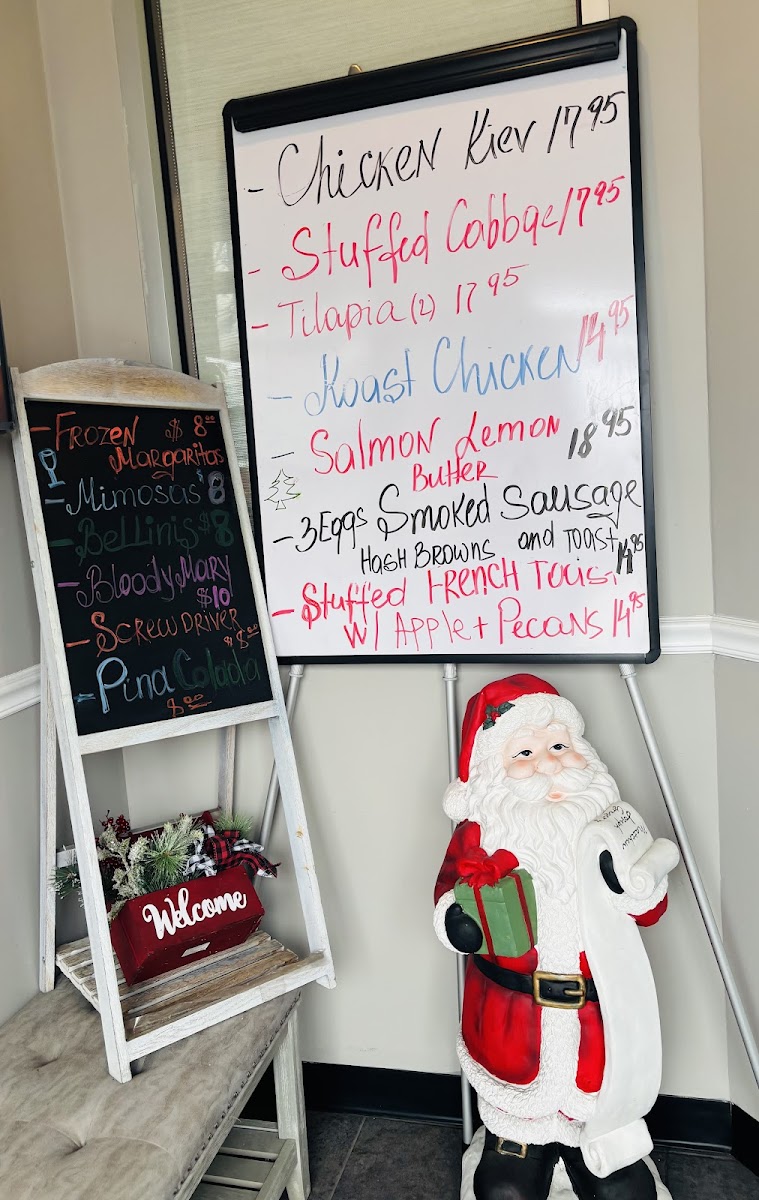 - Chicken Kiev 17 95
- Stuffed Cabbage/17 95
- Tilapia (2) 17 95
- Roast Chicken 14 95
- Salmon Lemon 18 95
Butter
- 3 Eggs Smoked Sausage
Hash Browns and Toast 14 95
- Stuffed French Toast
w/ Apple + Pecans 14 95
- Frozen $ 8 00
Margaritas
- Mimosas $ 8
- Bellinis $ 8
- Bloody Mary
$10
- Screwdriver
$ 8 00
- Pina Colada
8 00
Welcome